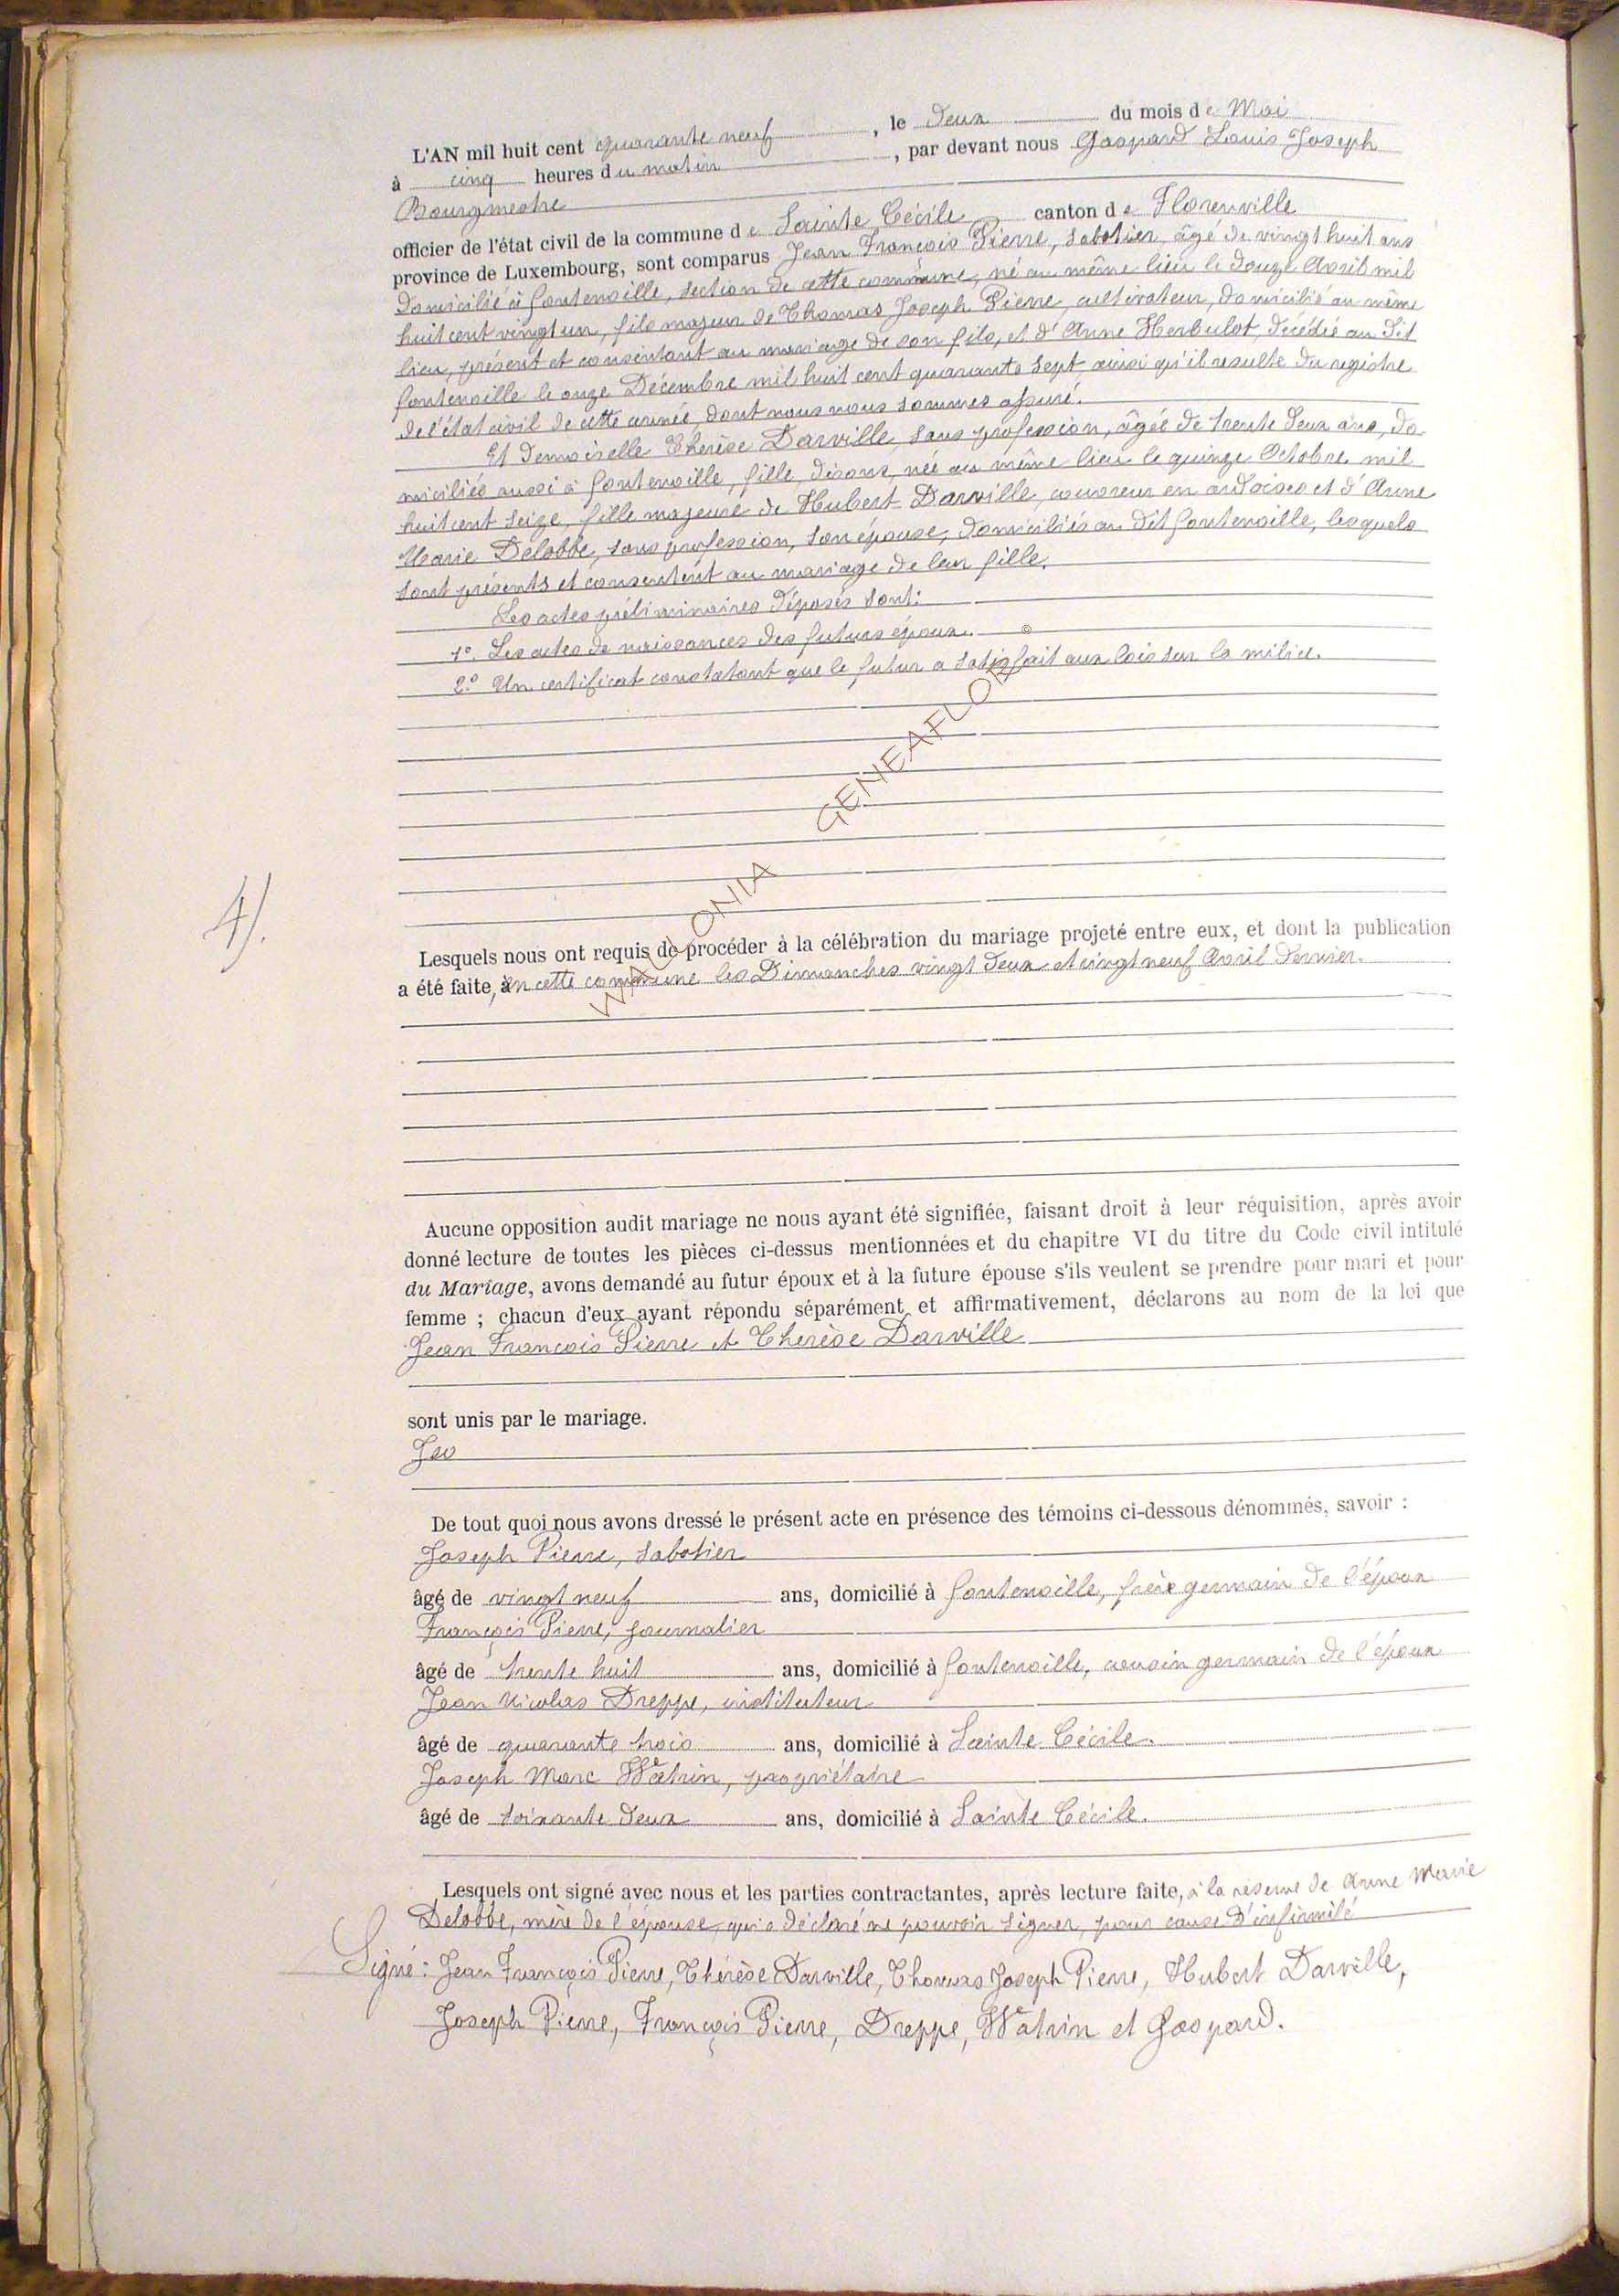 L'AN mil huit cent quarante neuf, le deux du mois de Mai
à cinq heures du matin, par devant nous Gaspard Louis Joseph
Bourgmestre
officier de l'état civil de la commune de Sainte Cécile canton de Florenville
province de Luxembourg, sont comparus Jean François Pierre, sabotier, âgé de vingt huit ans
domicilié à fontenoille, section de cette commune, né au même lieu le douze Avril mil
huit cent vingt un, fils majeur de Thomas Joseph Pierre, cultivateur, domicilié au même
lieu, présent et consentant au mariage de son fils, et d'Anne Herbulot, décédée au dit
fontenoille le onze Décembre mil huit cent quarante sept ainsi qu'il resulte du registre
de l'état civil de cette année, dont nous nous sommes assuré.
Et demoiselle Therèse Darville, sans profession, âgée de trente deux ans, do-
miciliée aussi à fontenoille, fille, disons, née au même lieu le quinze Octobre mil
huit cent seize, fille majeure de Hubert Darville, couvreur en ardoises et d'Anne
Marie Delobbe, sans profession, son épouse, domiciliés au dit fontenoille, lesquels
sont présents et consentent au mariage de leur fille.
Les actes préliminaires déposés sont:
1º. Les actes de naissances des futurs époux.
2º. Un certificat constatant que le futur a satisfait aux lois sur la milice.
©
WALLONIA GENEAFLOR
4).
Lesquels nous ont requis de procéder à la célébration du mariage projeté entre eux, et dont la publication
a été faite, en cette commune les Dimanches vingt deux et vingt neuf Avril dernier.
Aucune opposition audit mariage ne nous ayant été signifiée, faisant droit à leur réquisition, après avoir
donné lecture de toutes les pièces ci-dessus mentionnées et du chapitre VI du titre du Code civil intitulé
du Mariage, avons demandé au futur époux et à la future épouse s'ils veulent se prendre pour mari et pour
femme ; chacun d'eux ayant répondu séparément et affirmativement, déclarons au nom de la loi que
Jean François Pierre et Therèse Darville
sont unis par le mariage.
De tout quoi nous avons dressé le présent acte en présence des témoins ci-dessous dénommés, savoir :
Joseph Pierre, sabotier
âgé de vingt neuf ans, domicilié à fontenoille, frère germain de l'époux
François Pierre, journalier
âgé de trente huit ans, domicilié à fontenoille, cousin germain de l'époux
Jean Nicolas Dreppe, instituteur
âgé de quarante trois ans, domicilié à Sainte Cécile.
Joseph Marc Watrin, propriétaire
âgé de soixante deux ans, domicilié à Sainte Cécile.
Lesquels ont signé avec nous et les parties contractantes, après lecture faite, à la réserve de Anne Marie
Delobbe, mère de l'épouse, qui a déclaré ne pouvoir signer, pour cause d'infirmité
Signé : Jean François Pierre, Thérèse Darville, Thomas Joseph Pierre, Hubert Darville,
Joseph Pierre, François Pierre, Dreppe, Watrin et Gaspard.